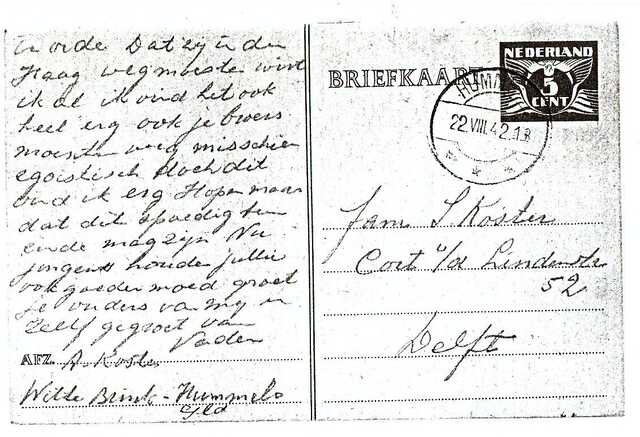 in orde Dat zij in den
Haag weg moesten wist
ik al ik vind het ook
heel erg ook je broers
moesten weg misschien
egoistisch doch dit
vind ik erg Hopen maar
dat dit spoedig ten
einde mag zijn Nu
jongens houden jullie
ook goeden moed groet
je ouders van mij en
zelf gegroet van
Vader
AFZ. A. Koster
Witte Brink - Hummelo
Gld
BRIEFKAART
NEDERLAND
5
CENT
HUMM
22.VIII.42.18
Fam S Koster
Cort v/d Lindenstr
52
Delft